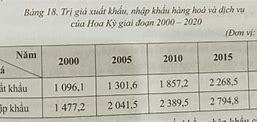 Bảng 18. Trị giá xuất khẩu, nhập khẩu hàng hoá và dịch vụ
của Hoa Kỳ giai đoạn 2000 – 2020
(Đơn vị:
Năm
2000 2005 2010 2015
á
ất khẩu 1 096,1 1 301,6 1 857,2 2 268,5
ập khẩu 1 477,2 2 041,5 2 389,5 2 794,8